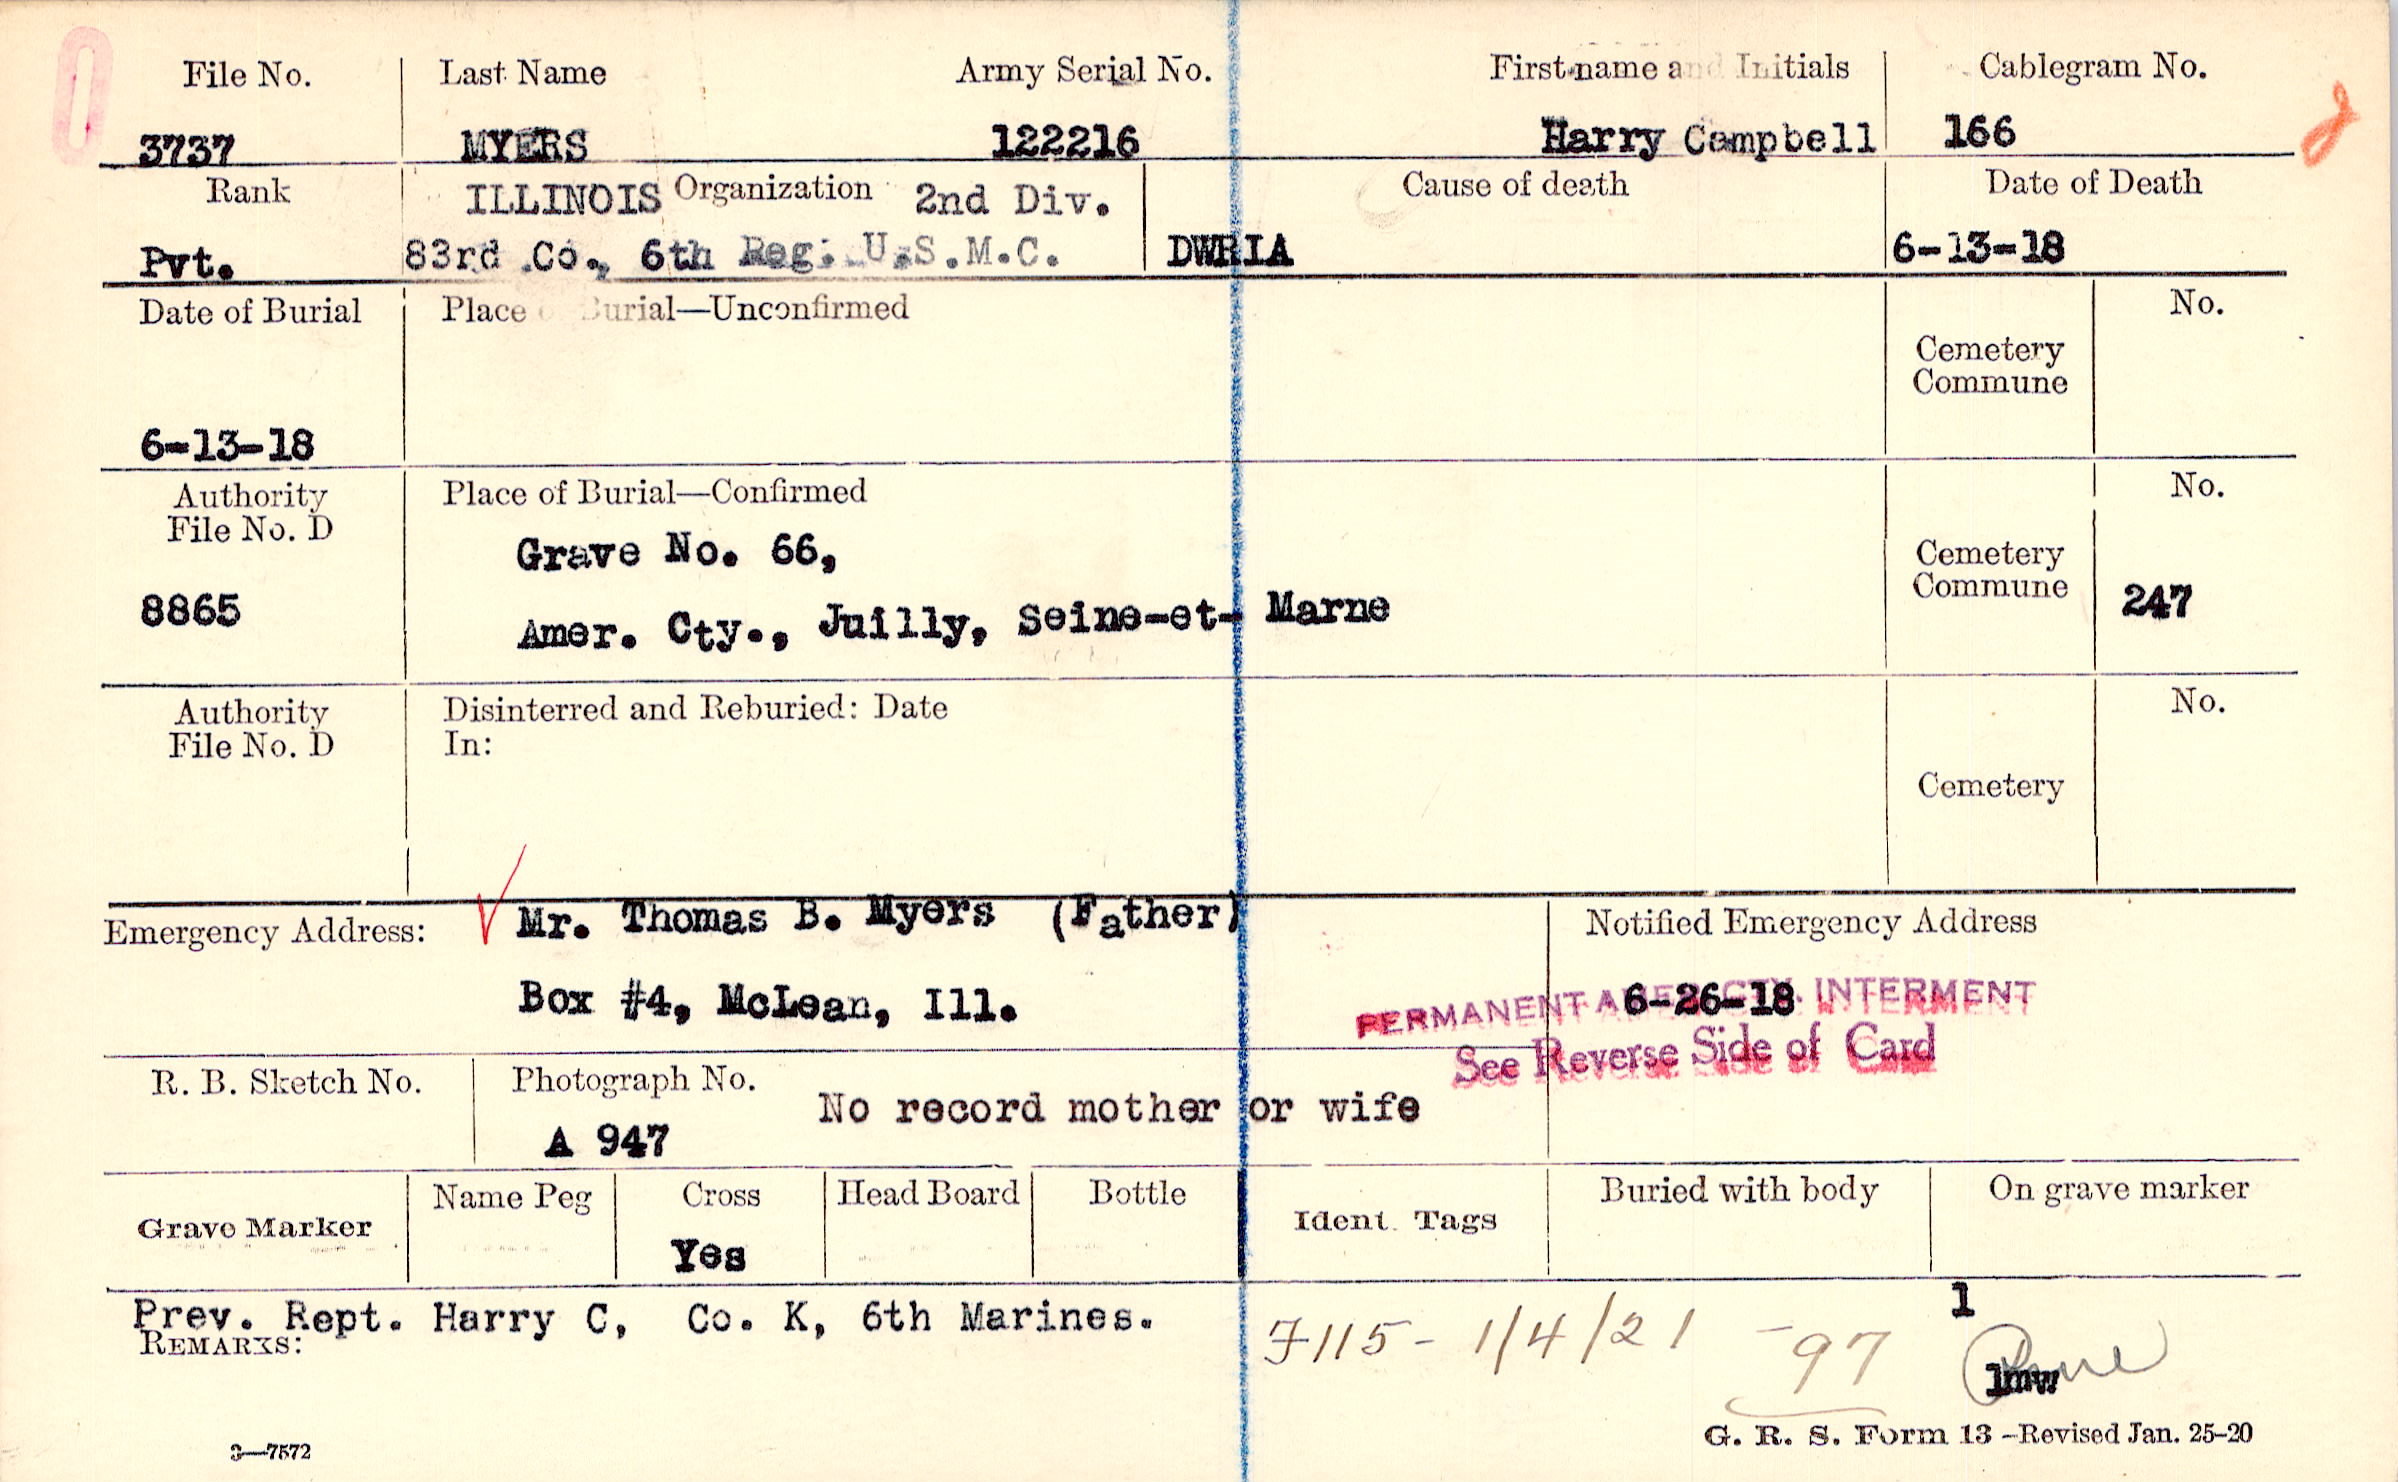 File No. Last Name Army Serial No. First name and Initials Cablegram No.
3737 MYERS 122216 Harry Campbell 166
Rank ILLINOIS Organization 2nd Div. Cause of death Date of Death
Pvt. 83rd Co., 6th Reg. U.S.M.C. DWRIA 6-13-18
Date of Burial Place of Burial—Unconfirmed No.
Cemetery
Commune
6-13-18
Authority Place of Burial—Confirmed No.
File No. D
Grave No. 66,
Cemetery
Commune
8865 Amer. Cty., Juilly, Seine-et- Marne 247
Authority Disinterred and Reburied: Date No.
File No. D In:
Cemetery
Emergency Address: Mr. Thomas B. Myers (Father) Notified Emergency Address
Box #4, McLean, Ill. 6-26-18
PERMANENT INTERMENT
See Reverse Side of Card
R. B. Sketch No. Photograph No.
No record mother or wife
A 947
Grave Marker Name Peg Cross Head Board Bottle Ident. Tags Buried with body On grave marker
Yes
1
Prev. Rept. Harry C, Co. K, 6th Marines.
REMARKS:
F115- 1/4/21 -97
lmw
G. R. S. Form 13 -Revised Jan. 25-20
3—7572